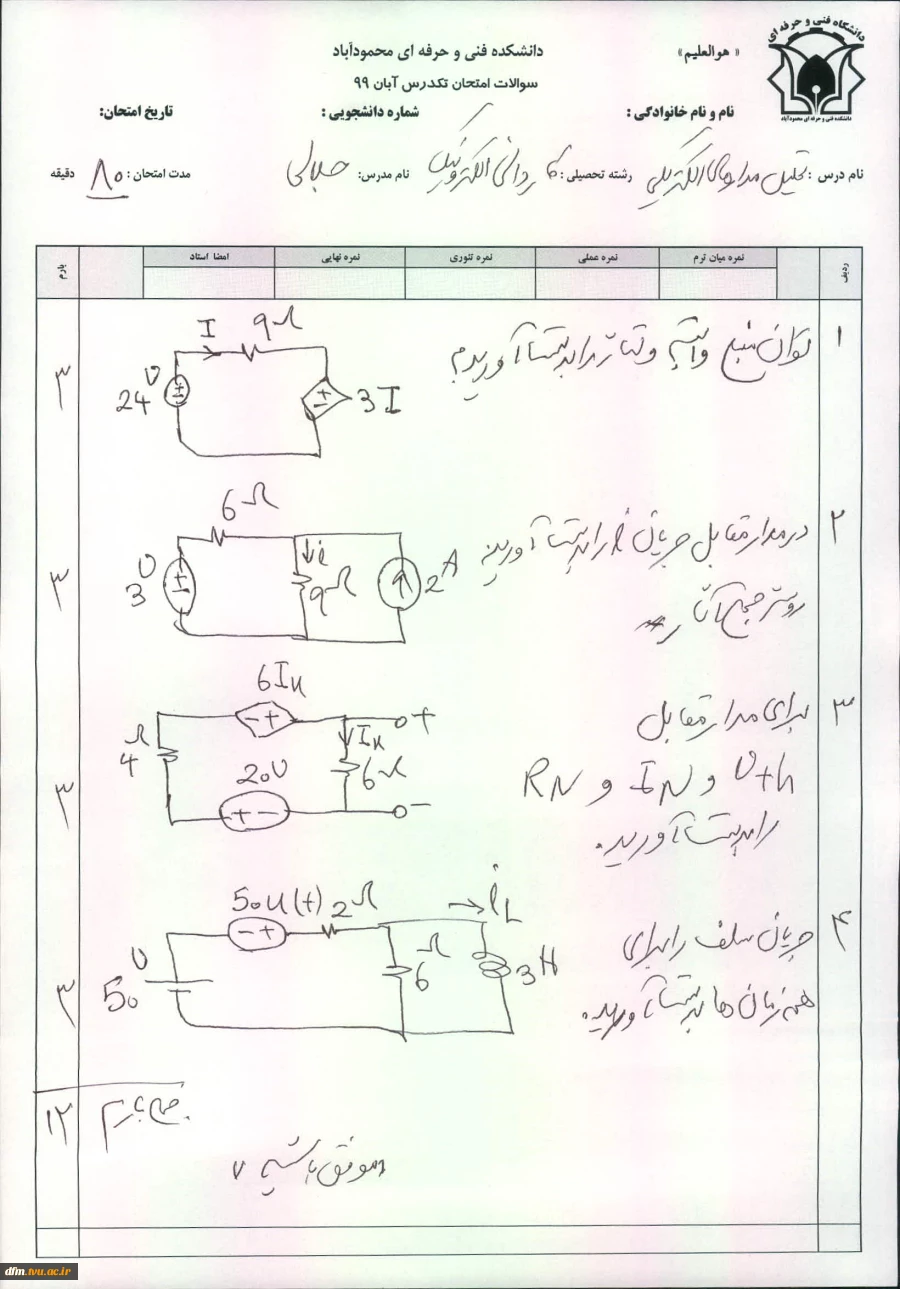 دانشگاه فنی و حرفه ای
دانشکده فنی و حرفه ای محمودآباد
« هوالعلیم»
دانشکده فنی و حرفه ای محمودآباد
سوالات امتحان تکدرس آبان ۹۹
نام و نام خانوادگی :
شماره دانشجویی :
تاریخ امتحان:
نام درس : تحلیل مدارهای الکتریکی رشته تحصیلی : کاردانی الکترونیک نام مدرس: جلالی مدت امتحان : ۸۰ دقیقه
ردیف نمره میان ترم نمره عملی نمره تئوری نمره نهایی امضا استاد بارم
۱ توان منبع وابسته و را بدست آورید ۳
I 9Ω
24 V
3I
۲ در مدار مقابل جریان i را بدست آورید ۳
روش جمع آثار
6Ω
3 V
i
9Ω
2 A
۳ برای مدار مقابل ۳
Vth و IN و RN
را بدست آورید.
6Ix
4 Ω
20V
Ix
6Ω
+
-
۴ جریان سلف را برای ۳
همه زمان ها بدست آورید.
50u(t) 2Ω
iL
50 V
6 Ω
3H
جمع بارم ۱۲
موفق باشید
dfm.tvu.ac.ir